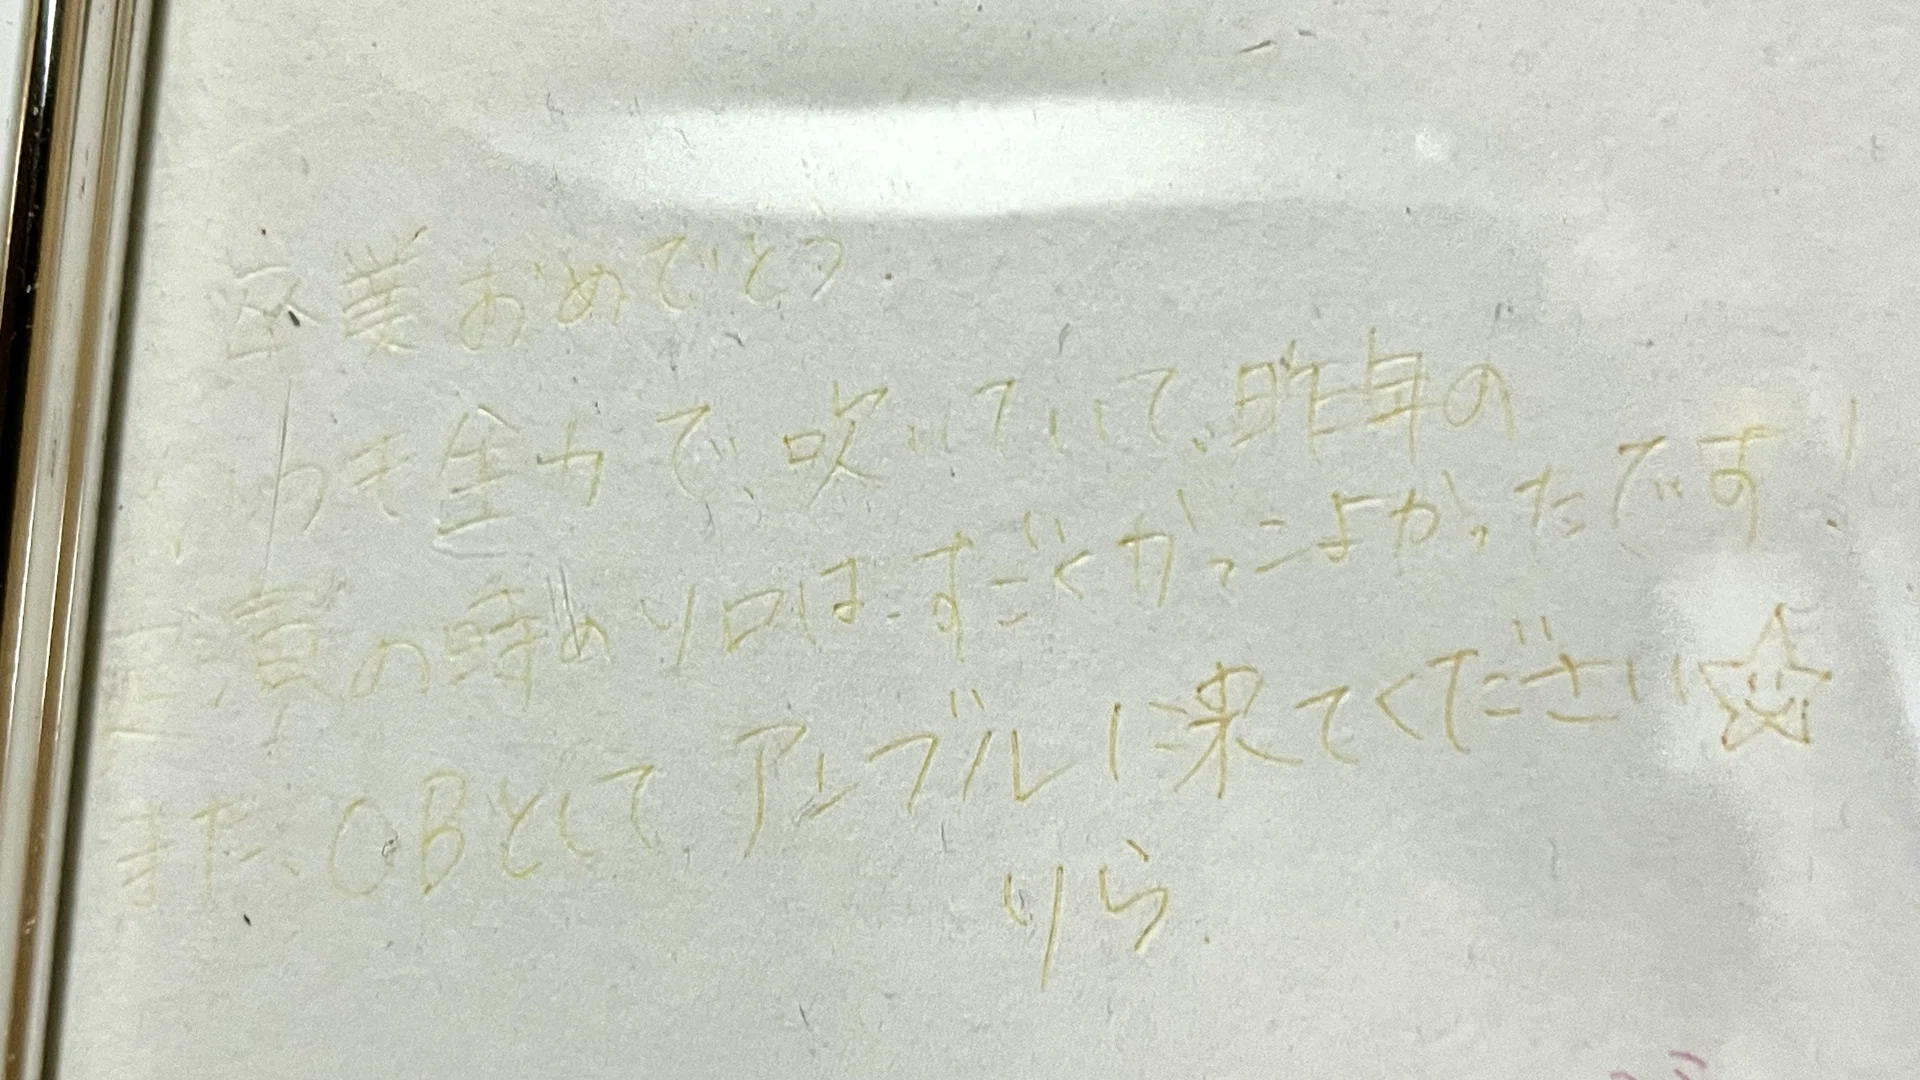 卒業おめでとう.
いつも全力で、吹いていて、昨年の
定演の時のソロはすごくかっこよかったです!
また、OBとしてアンブルに来てください☆
りら.